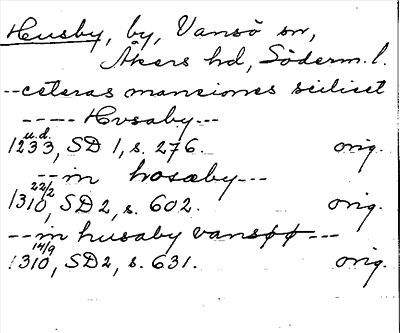 Husby, by, Vansö sn,
Åkers hd, Söderm. l.
--ceteras mansiones scilicet
---- Hvsaby---
u.d.
1233, SD 1, s. 276. orig.
--in hosaby---
22/2
1310, SD 2, s. 602. orig.
--in husaby vansøø---
14/9
1310, SD 2, s. 631. orig.